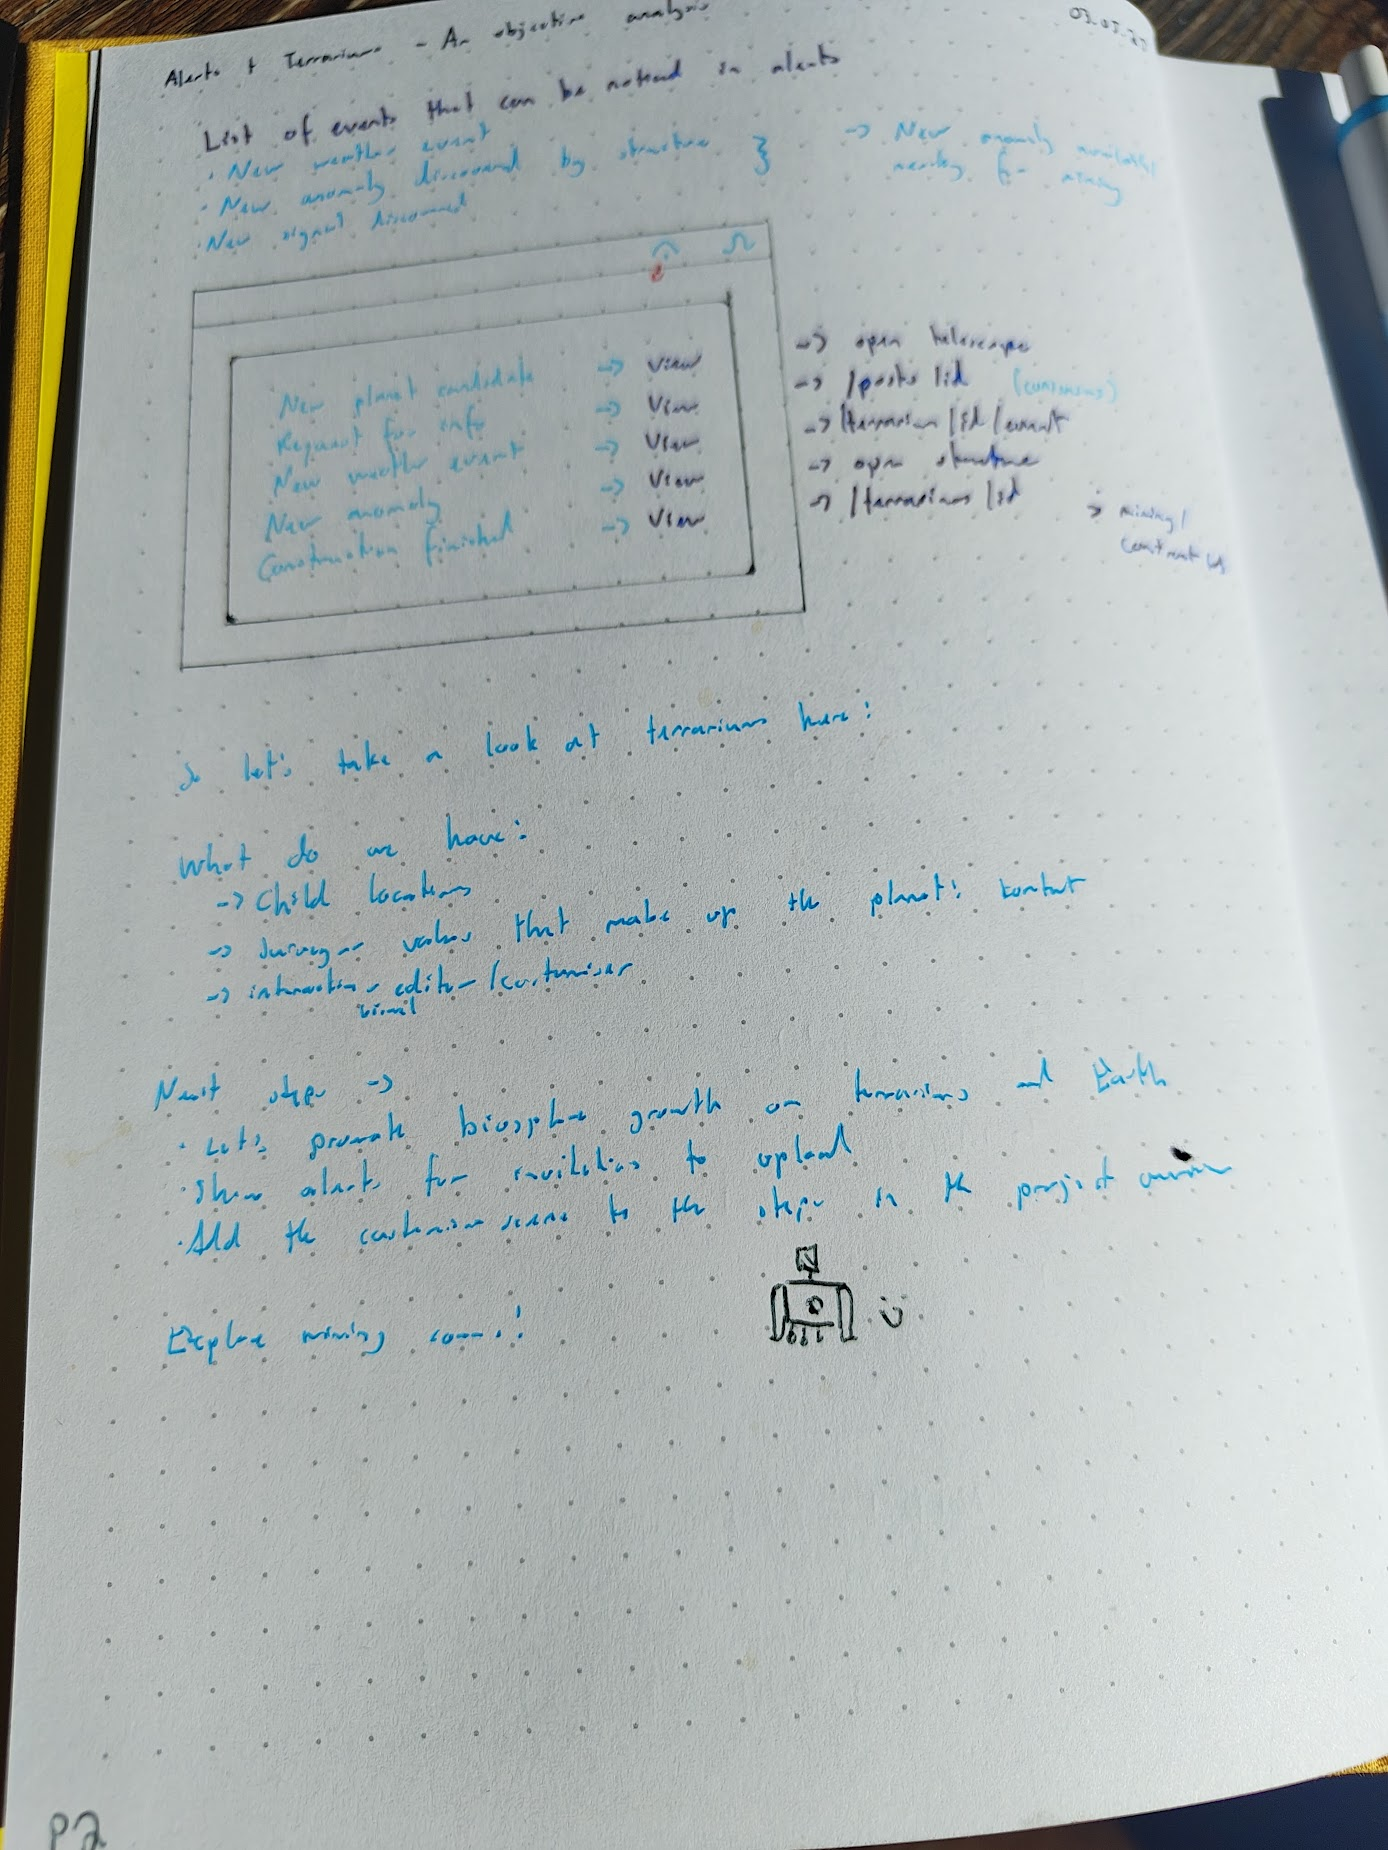 Alerts + Terrariums - An objective analysis
03.05.25
List of events that can be noticed in alerts
• New weather event
• New anomaly discovered by structure } -> New anomaly available
nearby for mining
• New signal discovered
New planet candidate -> View -> open telescope
Request for info -> View -> /posts/id (consensus)
New weather event -> View -> /terrarium/id/event
New anomaly -> View -> open structure
Construction finished -> View -> /terrariums/id -> mining/
So let's take a look at terrariums here:
What do we have:
-> Child locations
-> Surveyor values that make up the planet's
-> interaction editor/customiser
Next steps ->
• Let's promote biosphere growth on terrariums and Earth
• Show alerts for invitations to upload
• Add the customiser scene to the steps in the project
Explore mining
P2